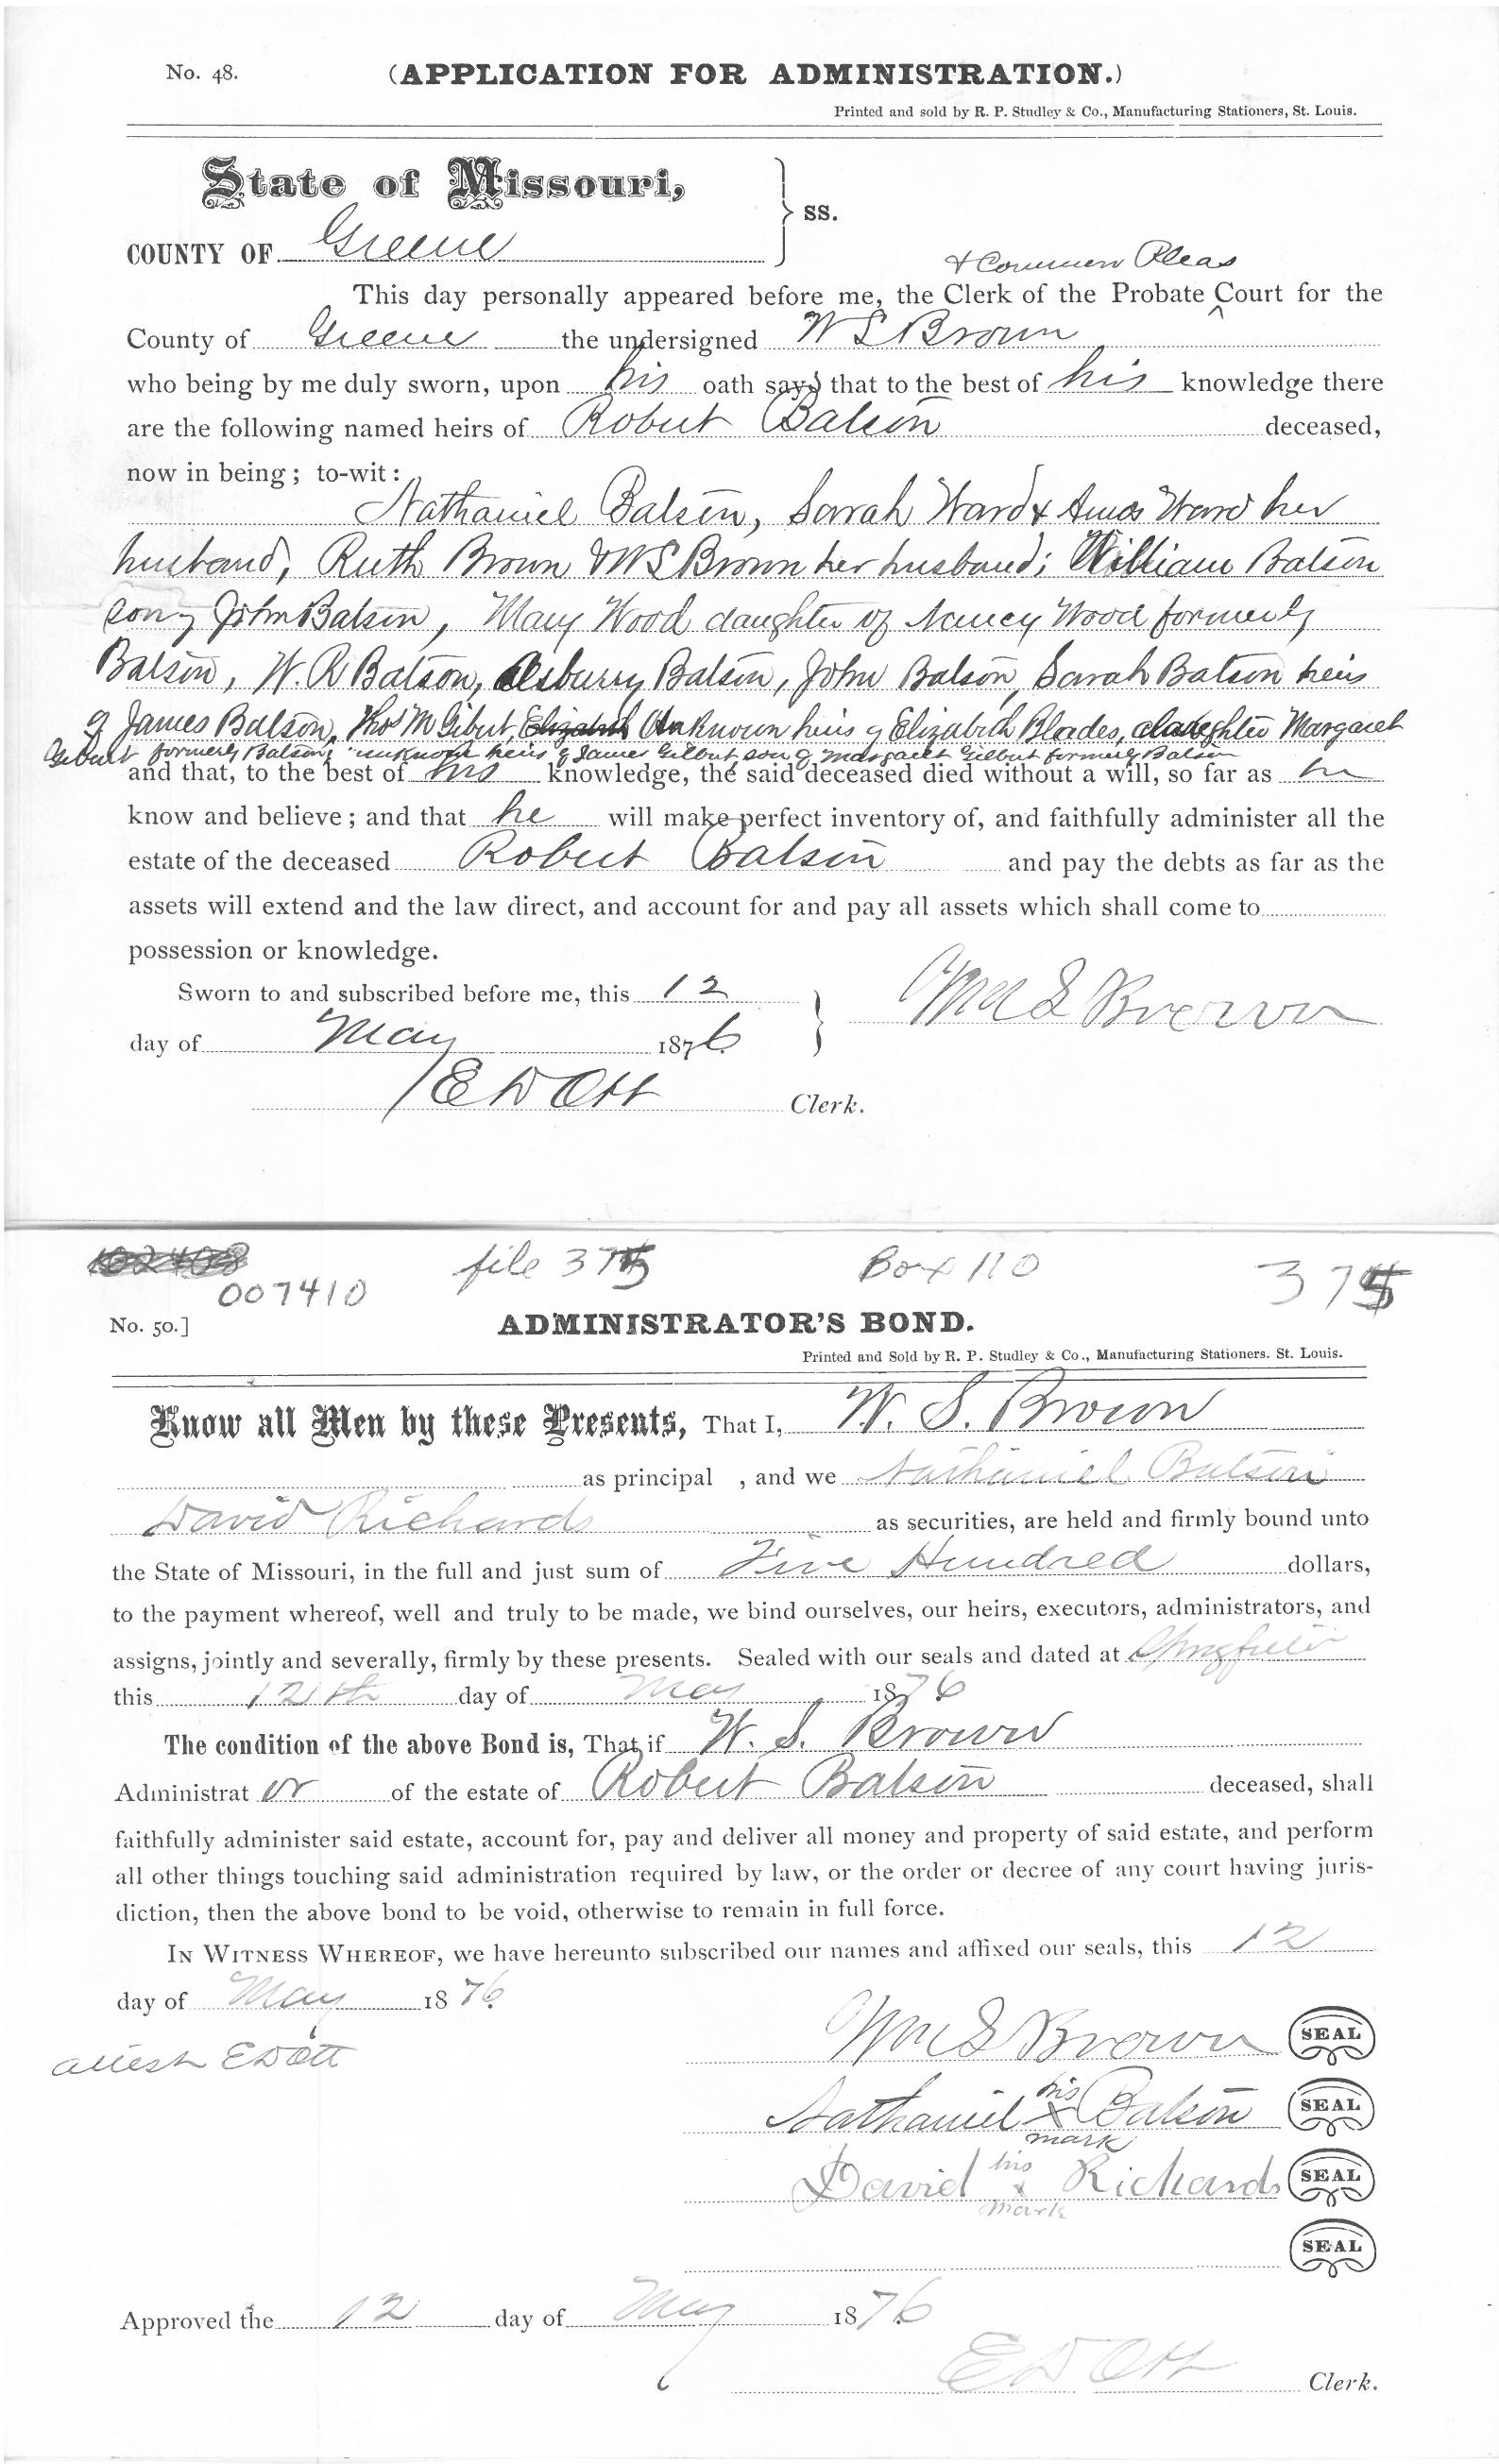 No. 48. (APPLICATION FOR ADMINISTRATION.)
Printed and sold by R. P. Studley & Co., Manufacturing Stationers, St. Louis.
State of Missouri,
COUNTY OF Greene } ss.
& Common Pleas
This day personally appeared before me, the Clerk of the Probate ^ Court for the
County of Greene the undersigned W S Brown
who being by me duly sworn, upon his oath says that to the best of his knowledge there
are the following named heirs of Robert Batson deceased,
now in being; to-wit:
Nathaniel Batson, Sarah Ward & Amos Ward her
husband, Ruth Brown & W S Brown her husband; William Batson
son of John Batson, Mary Wood daughter of Nancy Wood formerly
Batson, W. R Batson, Asburry Batson, John Batson, Sarah Batson heirs
of James Batson, Thos M Gibert, Elizabeth Unknown heirs of Elizabeth Blades, daughter Margaret
Gibert formerly Batson, unknown heirs of James Gilbert, son of Margaret Gilbert formerly Batson
and that, to the best of his knowledge, the said deceased died without a will, so far as he
know and believe; and that he will make perfect inventory of, and faithfully administer all the
estate of the deceased Robert Batson and pay the debts as far as the
assets will extend and the law direct, and account for and pay all assets which shall come to
possession or knowledge.
Sworn to and subscribed before me, this 12
day of May 1876 } Wm S Brown
E D Ott Clerk.
007410 file 375 Box 110 375
No. 50.] ADMINISTRATOR'S BOND.
Printed and Sold by R. P. Studley & Co., Manufacturing Stationers. St. Louis.
Know all Men by these Presents, That I, W. S. Brown
as principal , and we Nathaniel Batson
David Richards as securities, are held and firmly bound unto
the State of Missouri, in the full and just sum of Five Hundred dollars,
to the payment whereof, well and truly to be made, we bind ourselves, our heirs, executors, administrators, and
assigns, jointly and severally, firmly by these presents. Sealed with our seals and dated at Springfield
this 12th day of May 1876
The condition of the above Bond is, That if W. S. Brown
Administrat or of the estate of Robert Batson deceased, shall
faithfully administer said estate, account for, pay and deliver all money and property of said estate, and perform
all other things touching said administration required by law, or the order or decree of any court having juris-
diction, then the above bond to be void, otherwise to remain in full force.
IN WITNESS WHEREOF, we have hereunto subscribed our names and affixed our seals, this 12
day of May 1876.
attest E D Ott
Wm S Brown SEAL
his
Nathaniel X Batson SEAL
mark
his
David x Richards SEAL
mark
SEAL
Approved the 12 day of May 1876
E D Ott Clerk.